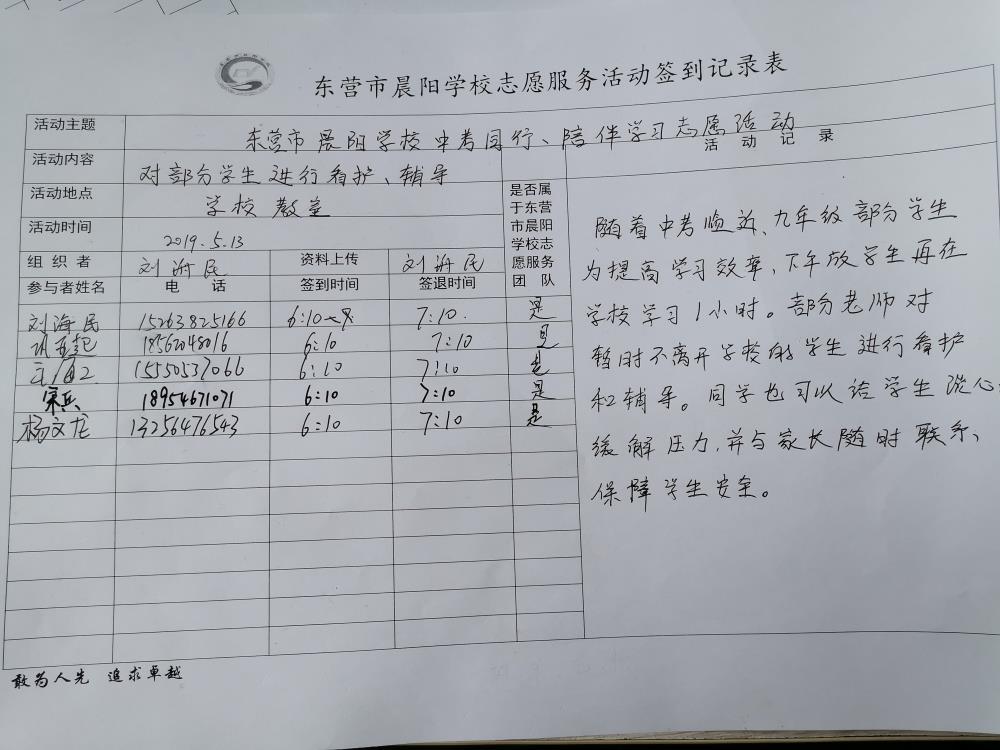 东营市晨阳学校志愿服务活动签到记录表
活动主题 东营市晨阳学校中考同行、陪伴学习志愿活动
活动内容 对部分学生进行看护、辅导
活动地点 学校教室
活动时间 2019.5.13
组织者 刘海民 资料上传 刘海民
是否属于东营市晨阳学校志愿服务团队
参与者姓名 电话 签到时间 签退时间
刘海民 15263825166 6:10 7:10. 是
18562048016 6:10 7:10 是
15550537066 6:10 7:10 是
宋兵 18954671071 6:10 7:10 是
杨文龙 13256476543 6:10 7:10 是
活动记录
随着中考临近、九年级部分学生
为提高学习效率、下午放学生再在
学校学习1小时。部分老师对
暂时不离开学校的学生进行看护
和辅导。同学也可以给学生谈心
缓解压力,并与家长随时联系、
保障学生安全。
敢为人先 追求卓越